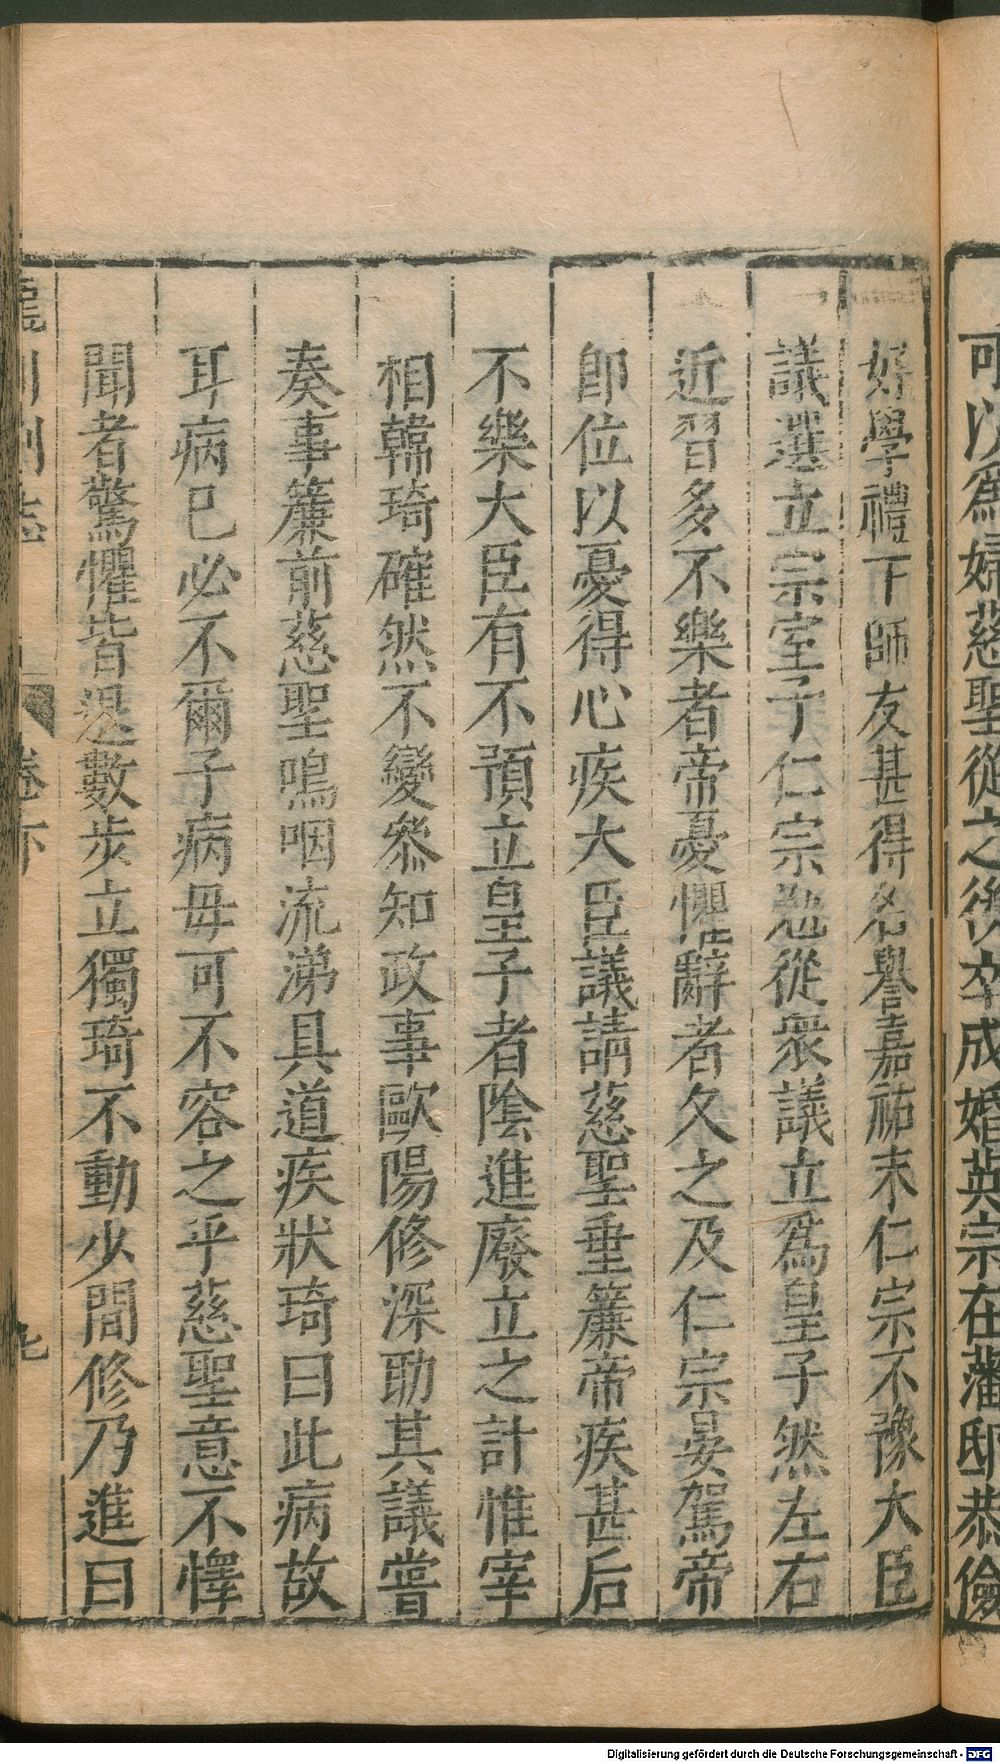 可以為婦慈聖從之後卒成婚英宗在藩邸恭儉
好學禮下師友甚得名譽嘉祐末仁宗不豫大臣
議選立宗室子仁宗勉從衆議立爲皇子然左右
近習多不樂者帝憂懼辭者久之及仁宗晏駕帝
卽位以憂得心疾大臣議請慈聖垂簾帝疾甚后
不樂大臣有不預立皇子者陰進廢立之計惟宰
相韓琦確然不變叅知政事歐陽修深助其議嘗
奏事簾前慈聖嗚咽流涕具道疾狀琦曰此病故
耳病已必不爾子病母可不容之乎慈聖意不懌
聞者驚懼皆退數步立獨琦不動少間修乃進曰
龍川別志 卷下 七
Digitalisierung gefördert durch die Deutsche Forschungsgemeinschaft - DFG